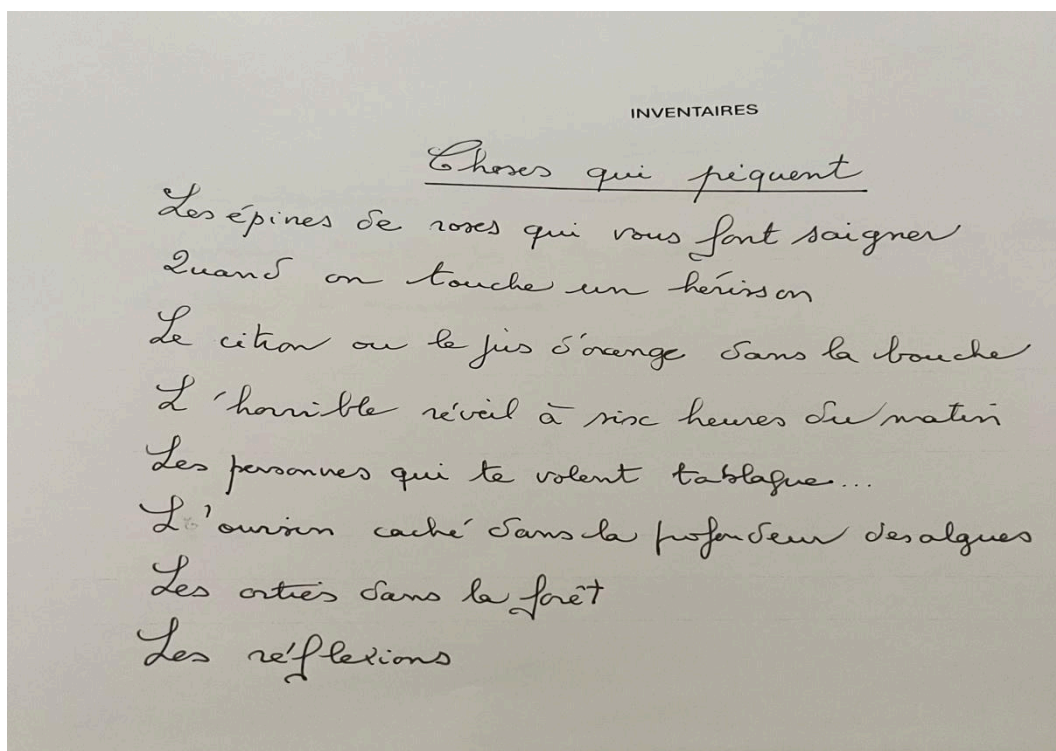 INVENTAIRES
Choses qui piquent
Les épines de roses qui vous font saigner
Quand on touche un hérisson
Le citron ou le jus d'orange dans la bouche
L'horrible réveil à six heures du matin
Les personnes qui te volent ta blague...
L'oursin caché dans la profondeur des algues
Les orties dans la forêt
Les réflexions